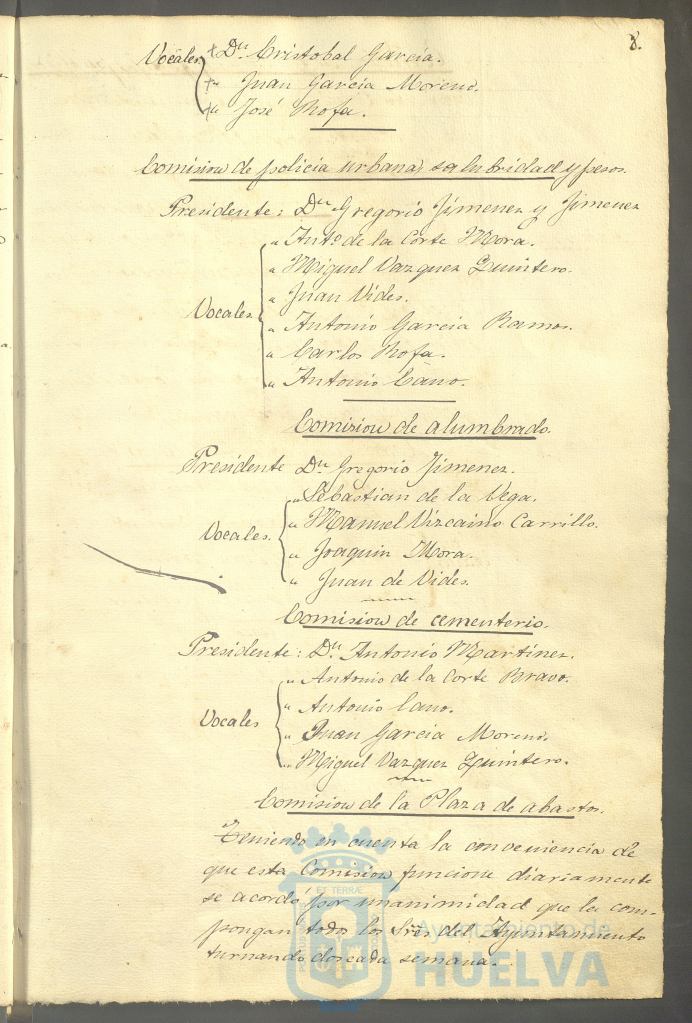 8.
Vocales Dn Cristobal Garcia.
" Juan Garcia Moreno.
" José Rofa.
Comision de policia urbana, salubridad y pesos.
Presidente: Dn Gregorio Jimenez y Jimenez
" Anto de la Corte Mora.
" Miguel Vazquez Quintero.
" Juan Vides.
Vocales " Antonio Garcia Ramos.
" Carlos Rofa.
" Antonio Cano.
Comision de alumbrado.
Presidente Dn Gregorio Jimenez.
" Sebastian de la Vega.
" Manuel Vizcaino Carrillo.
Vocales " Joaquin Mora.
" Juan de Vides.
Comision de cementerio.
Presidente: Dn Antonio Martinez.
" Antonio de la Corte Bravo.
" Antonio Cano.
Vocales " Juan Garcia Moreno.
" Miguel Vazquez Quintero.
Comision de la Plaza de abastos.
Teniendo en cuenta la conveniencia de
que esta Comision funcione diariamente
se acordó por unanimidad que la com-
pongan todos los Sres del Ayuntamiento
turnando dos cada semana.
Ayuntamiento de
HUELVA